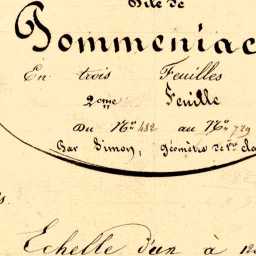 Dite de
Pommeniac
En trois Feuilles
2ᵉᵐᵉ Feuille
Du Nº 482 au Nº 729
Par Simon, géomètre de 1ʳᵉ cla
Echelle d'un à 12